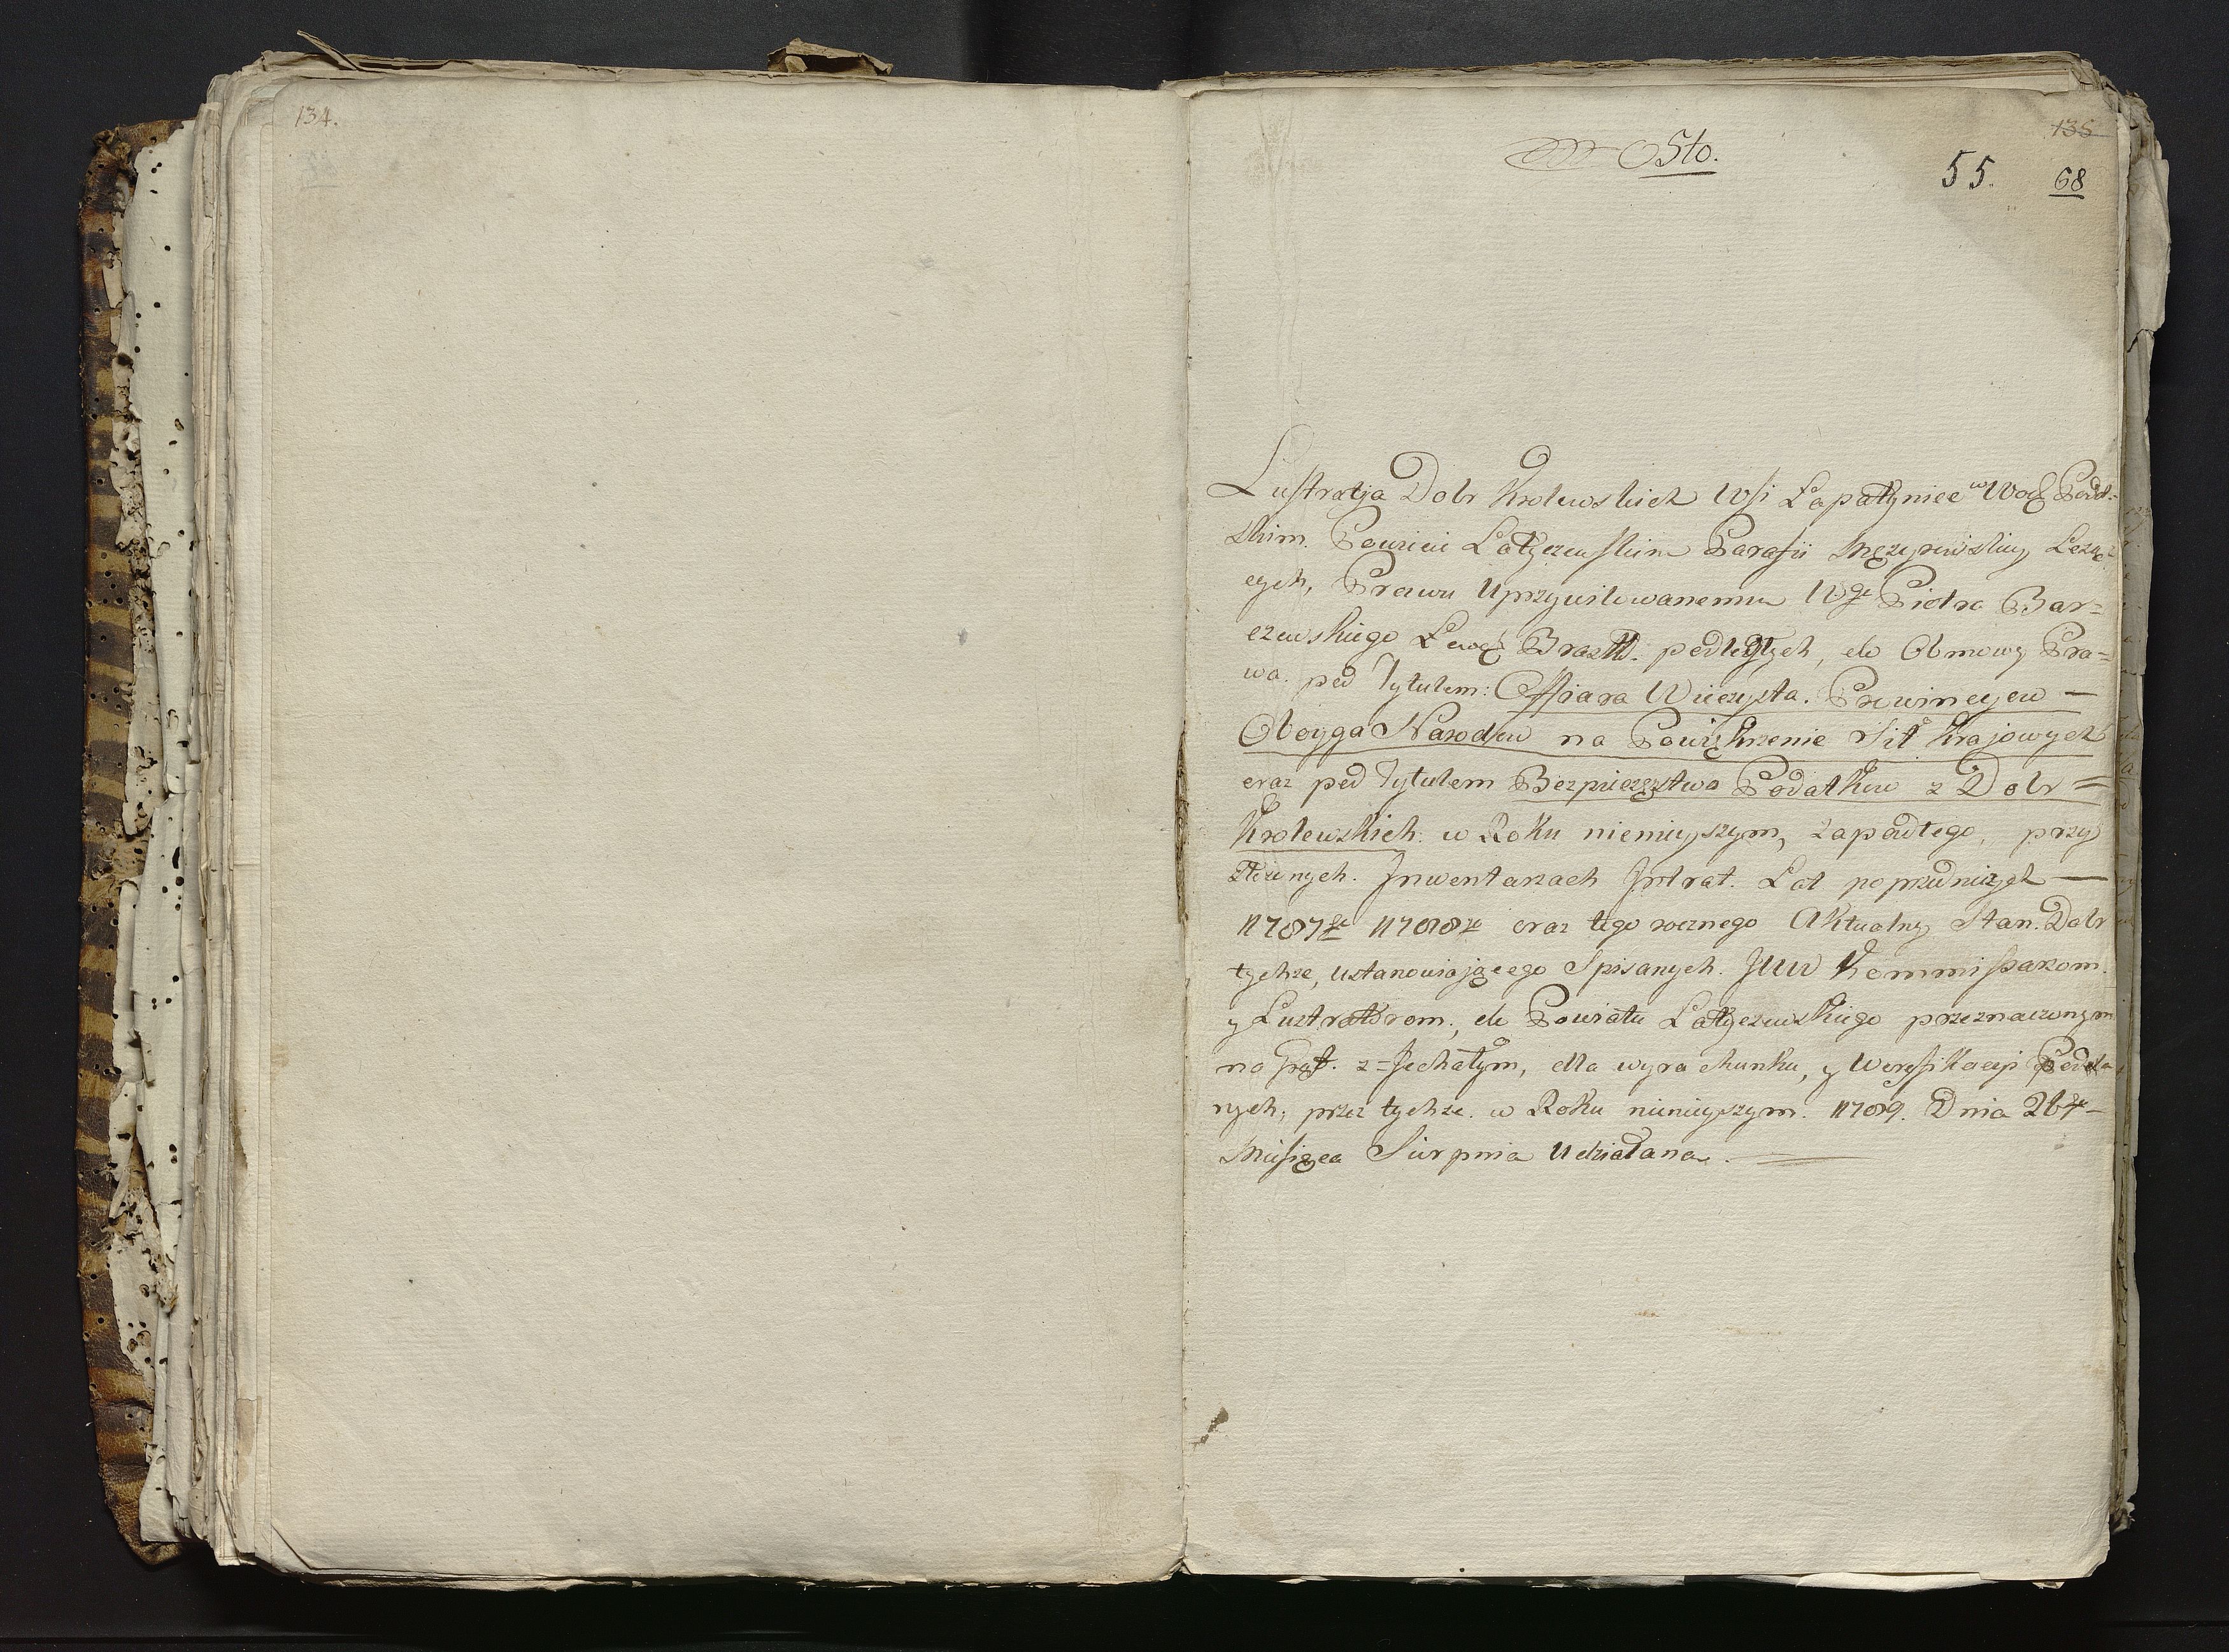 134.
135
Osto.
55. 68
Lustratja Dobr Krolewskich Wsi Łapatyniec w Wodz Podol=
skim. Powieci Latyczewskim Parafii Męzyrowskiey Leżą=
cych, Prawu Uprzywilowanemu Wgo Piotra Bar=
czewskiego Łowcz Brazł podległych, do Obmowy Pra=
wa. pod Tytułem: Offiara Wieczysta. Prowincyow —
Oboyga Narodow na Powiększenie Sił Krajowych
oraz pod Tytułem Bezpieczęstwo Podatkow z Dobr =
Krolewskich. w Roku nienieyszym, zapadłego, przy
złożonych. Inwentarzach Intrat. Lat poprzedniczych —
1787go 1788go oraz tego rocznego Aktualny Stan. Dobr
tychże, ustanowiającego Spisanych. JWW Kommissarzom.
y Lustratorom., do Powiatu Latyczewskiego przeznaczonym
na Grąt. z=Jechałym, dla wyrachunku, y Weryfikacyi Poda=
nych; przez tychże. w Roku nienieyszym. 1789. Dnia 26go —
Miesięca Sierpnia Udziałana. —